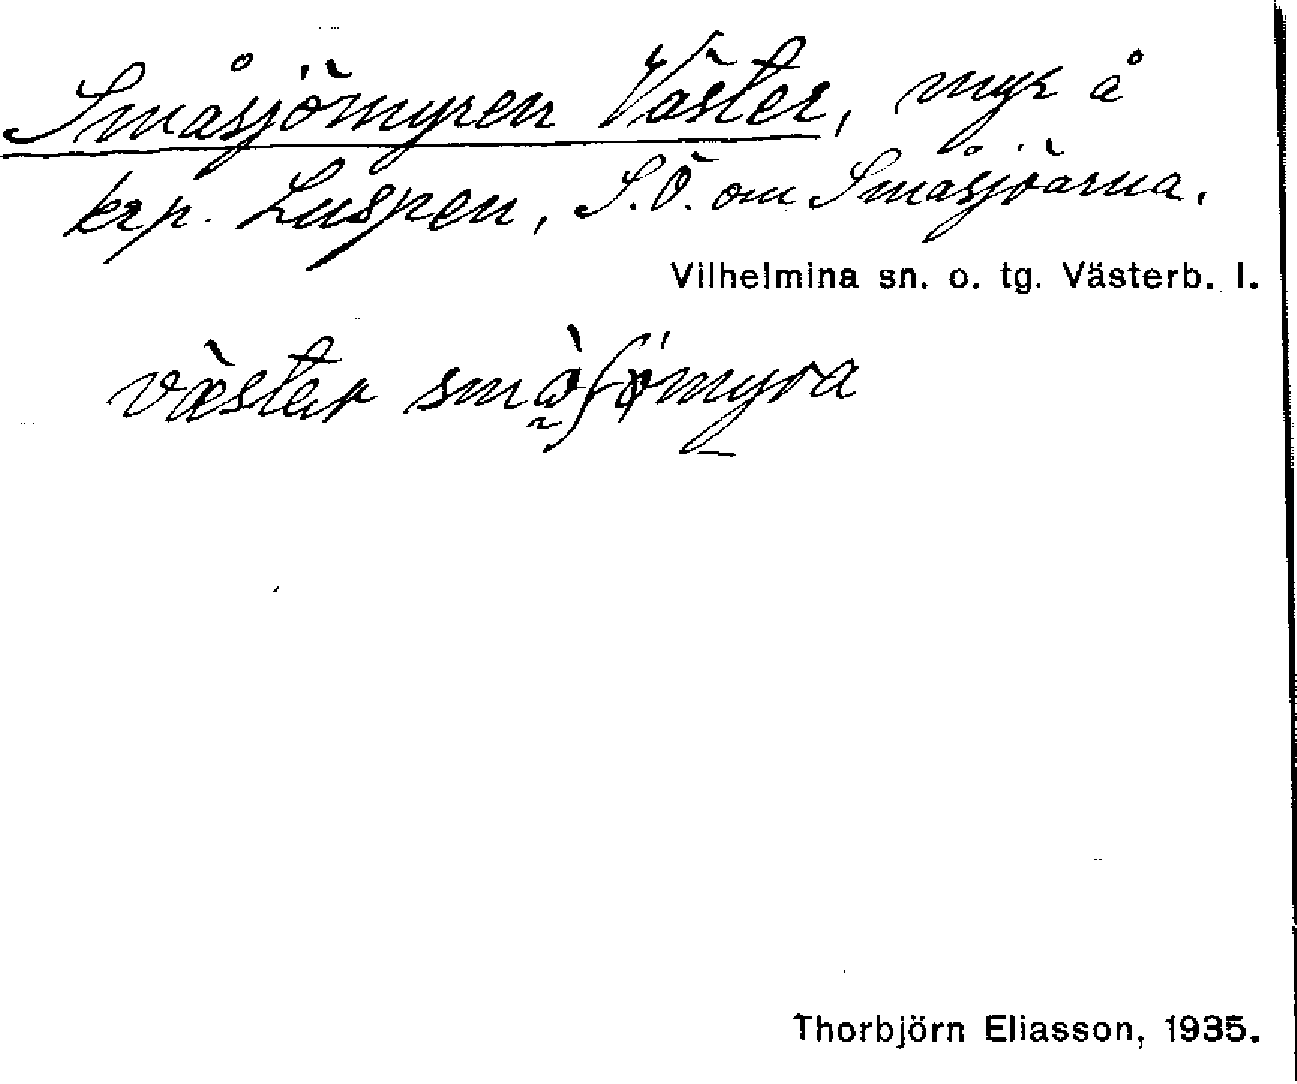 Småsjömyren Väster, myr å
krp. Luspen, S.Ö. om Småsjöarna.
Vilhelmina sn. o. tg. Västerb. l.
Thorbjörn Eliasson, 1935.